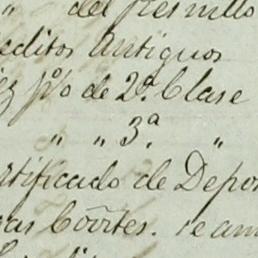 " del
editos Antiguos
p% de 2ª. Clase
" " 3ª. "
rtificado de Depo
as Cõrtes.